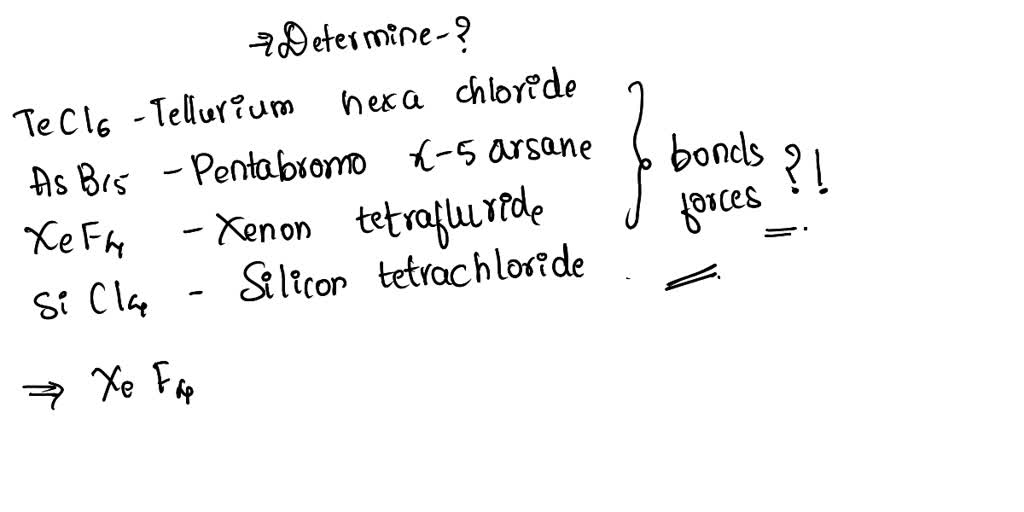 → Determine-?
TeCl6 - Tellurium hexa chloride
AsBr5 - Pentabromo x-5 arsane
XeF4 - Xenon tetrafluride
SiCl4 - Silicon tetrachloride
bonds
forces ?!
⇒ XeF4